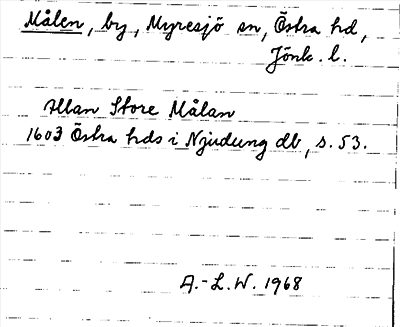 Målen, by, Myresjö sn, Östra hd,
Jönk. l.
Store Målan
1603 Östra hds i Njudung db, s. 53.
A.-L.W. 1968